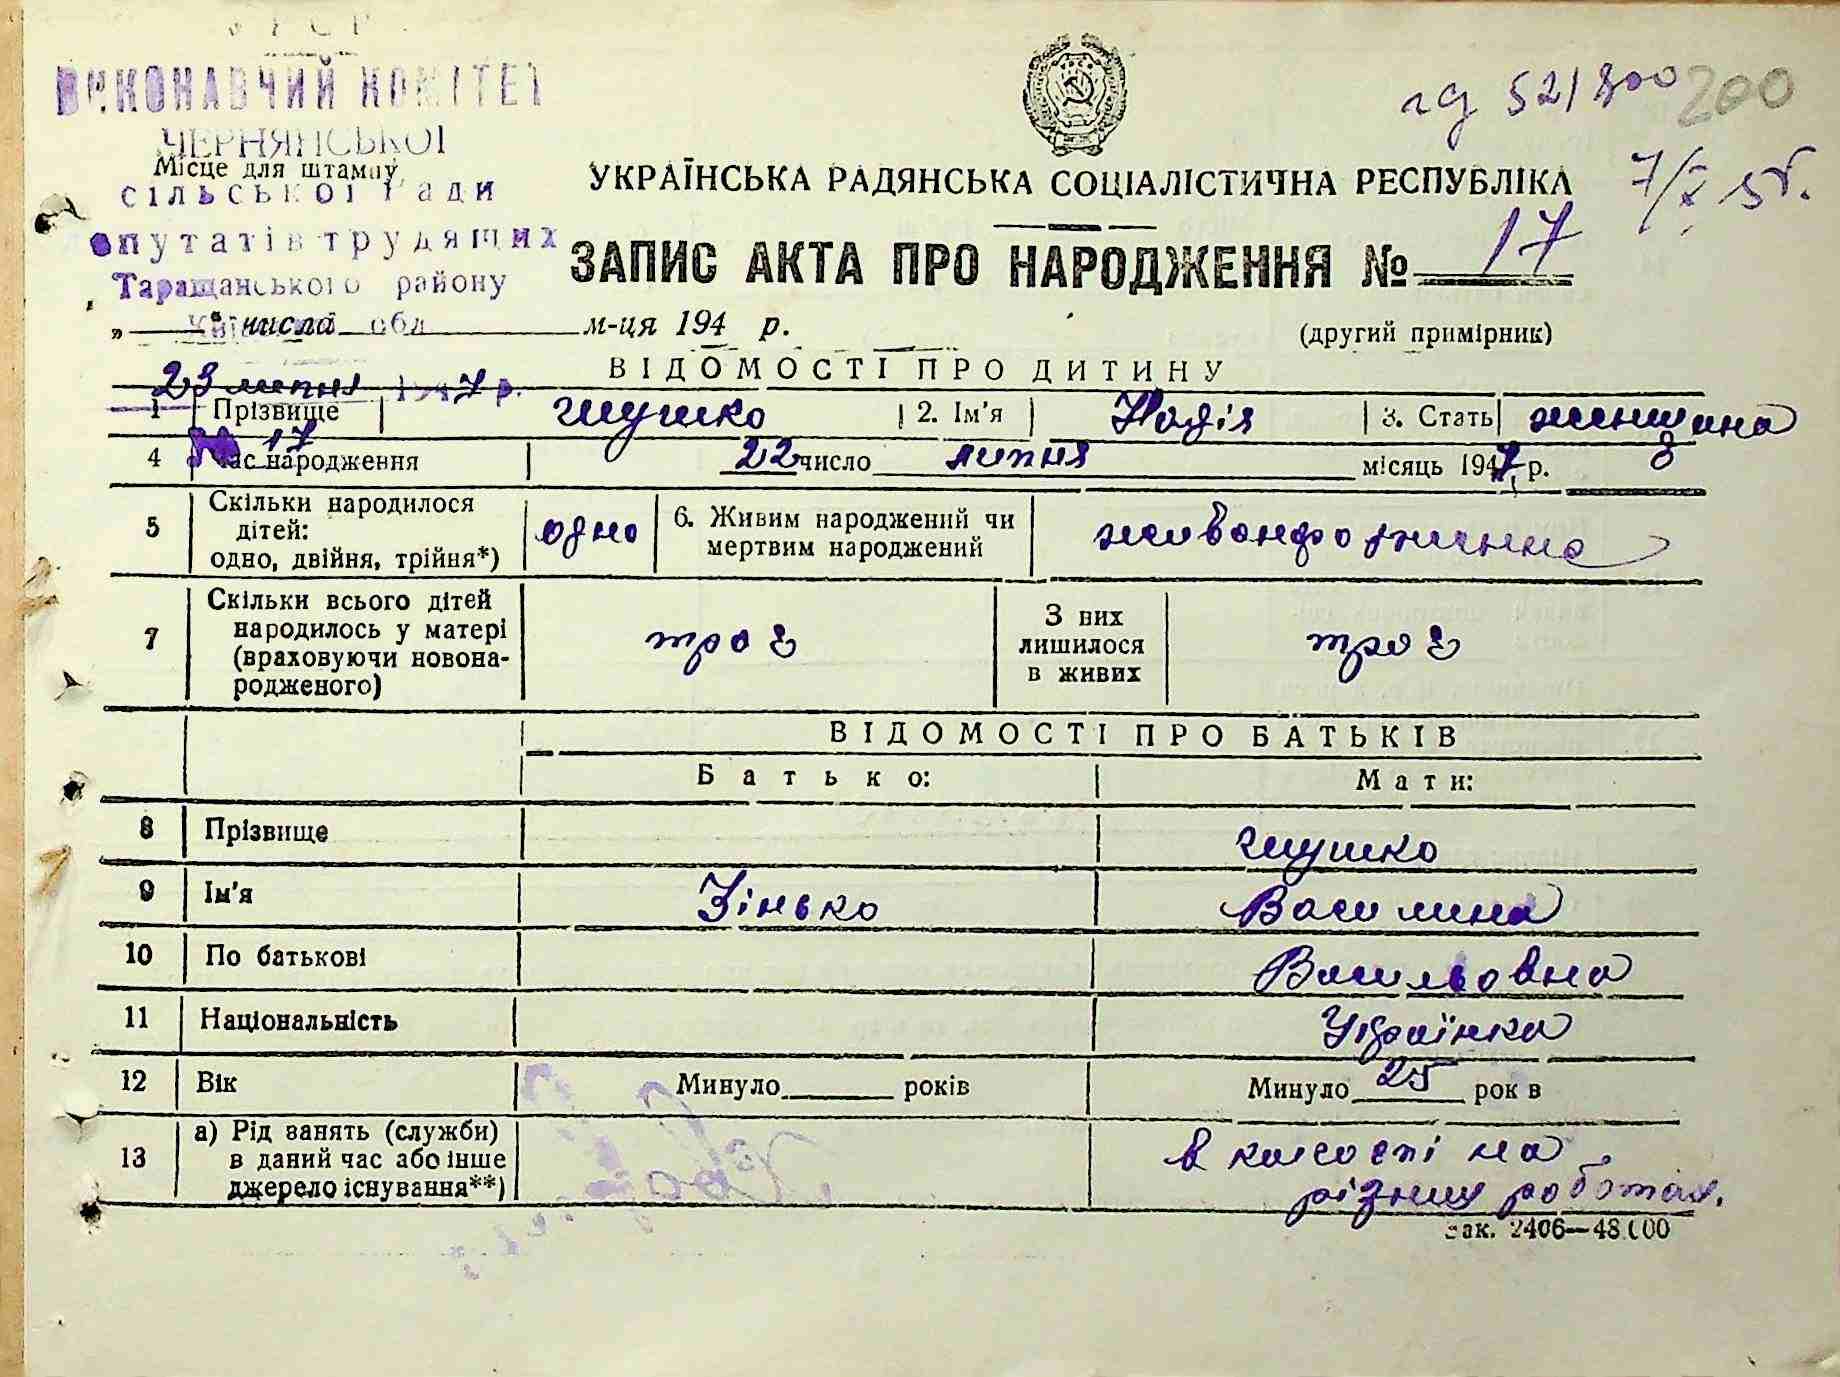 УРСР
ВИКОНАВЧИЙ КОМІТЕТ
ЧЕРНЯНСЬКОЇ
Місце для штампу
сільської Ради
депутатів трудящих
Таращанського району
Київської обл
гд 52/800 200
7/X 15б.
УКРАЇНСЬКА РАДЯНСЬКА СОЦІАЛІСТИЧНА РЕСПУБЛІКА
ЗАПИС АКТА ПРО НАРОДЖЕННЯ № 17
„ числа м-ця 194 р.
(другий примірник)
23 липня 1947 р.
№ 17
ВІДОМОСТІ ПРО ДИТИНУ
1 Прізвище Глушко 2. Ім'я Надія 3. Стать женщина
4 Час народження 22 число липня місяць 1947 р. 8
5 Скільки народилося дітей: одно, двійня, трійня*) одно 6. Живим народжений чи мертвим народжений
7 Скільки всього дітей народилось у матері (враховуючи новонародженого) троє З них лишилося в живих троє
ВІДОМОСТІ ПРО БАТЬКІВ
Батько: Мати:
8 Прізвище Глушко
9 Ім'я Зінько Василина
10 По батькові Васильовна
11 Національність Українка
12 Вік Минуло років Минуло 25 рок в
13 а) Рід занять (служби) в даний час або інше джерело існування**) в колгоспі на
різних роботах.
Зак. 2406—48.000